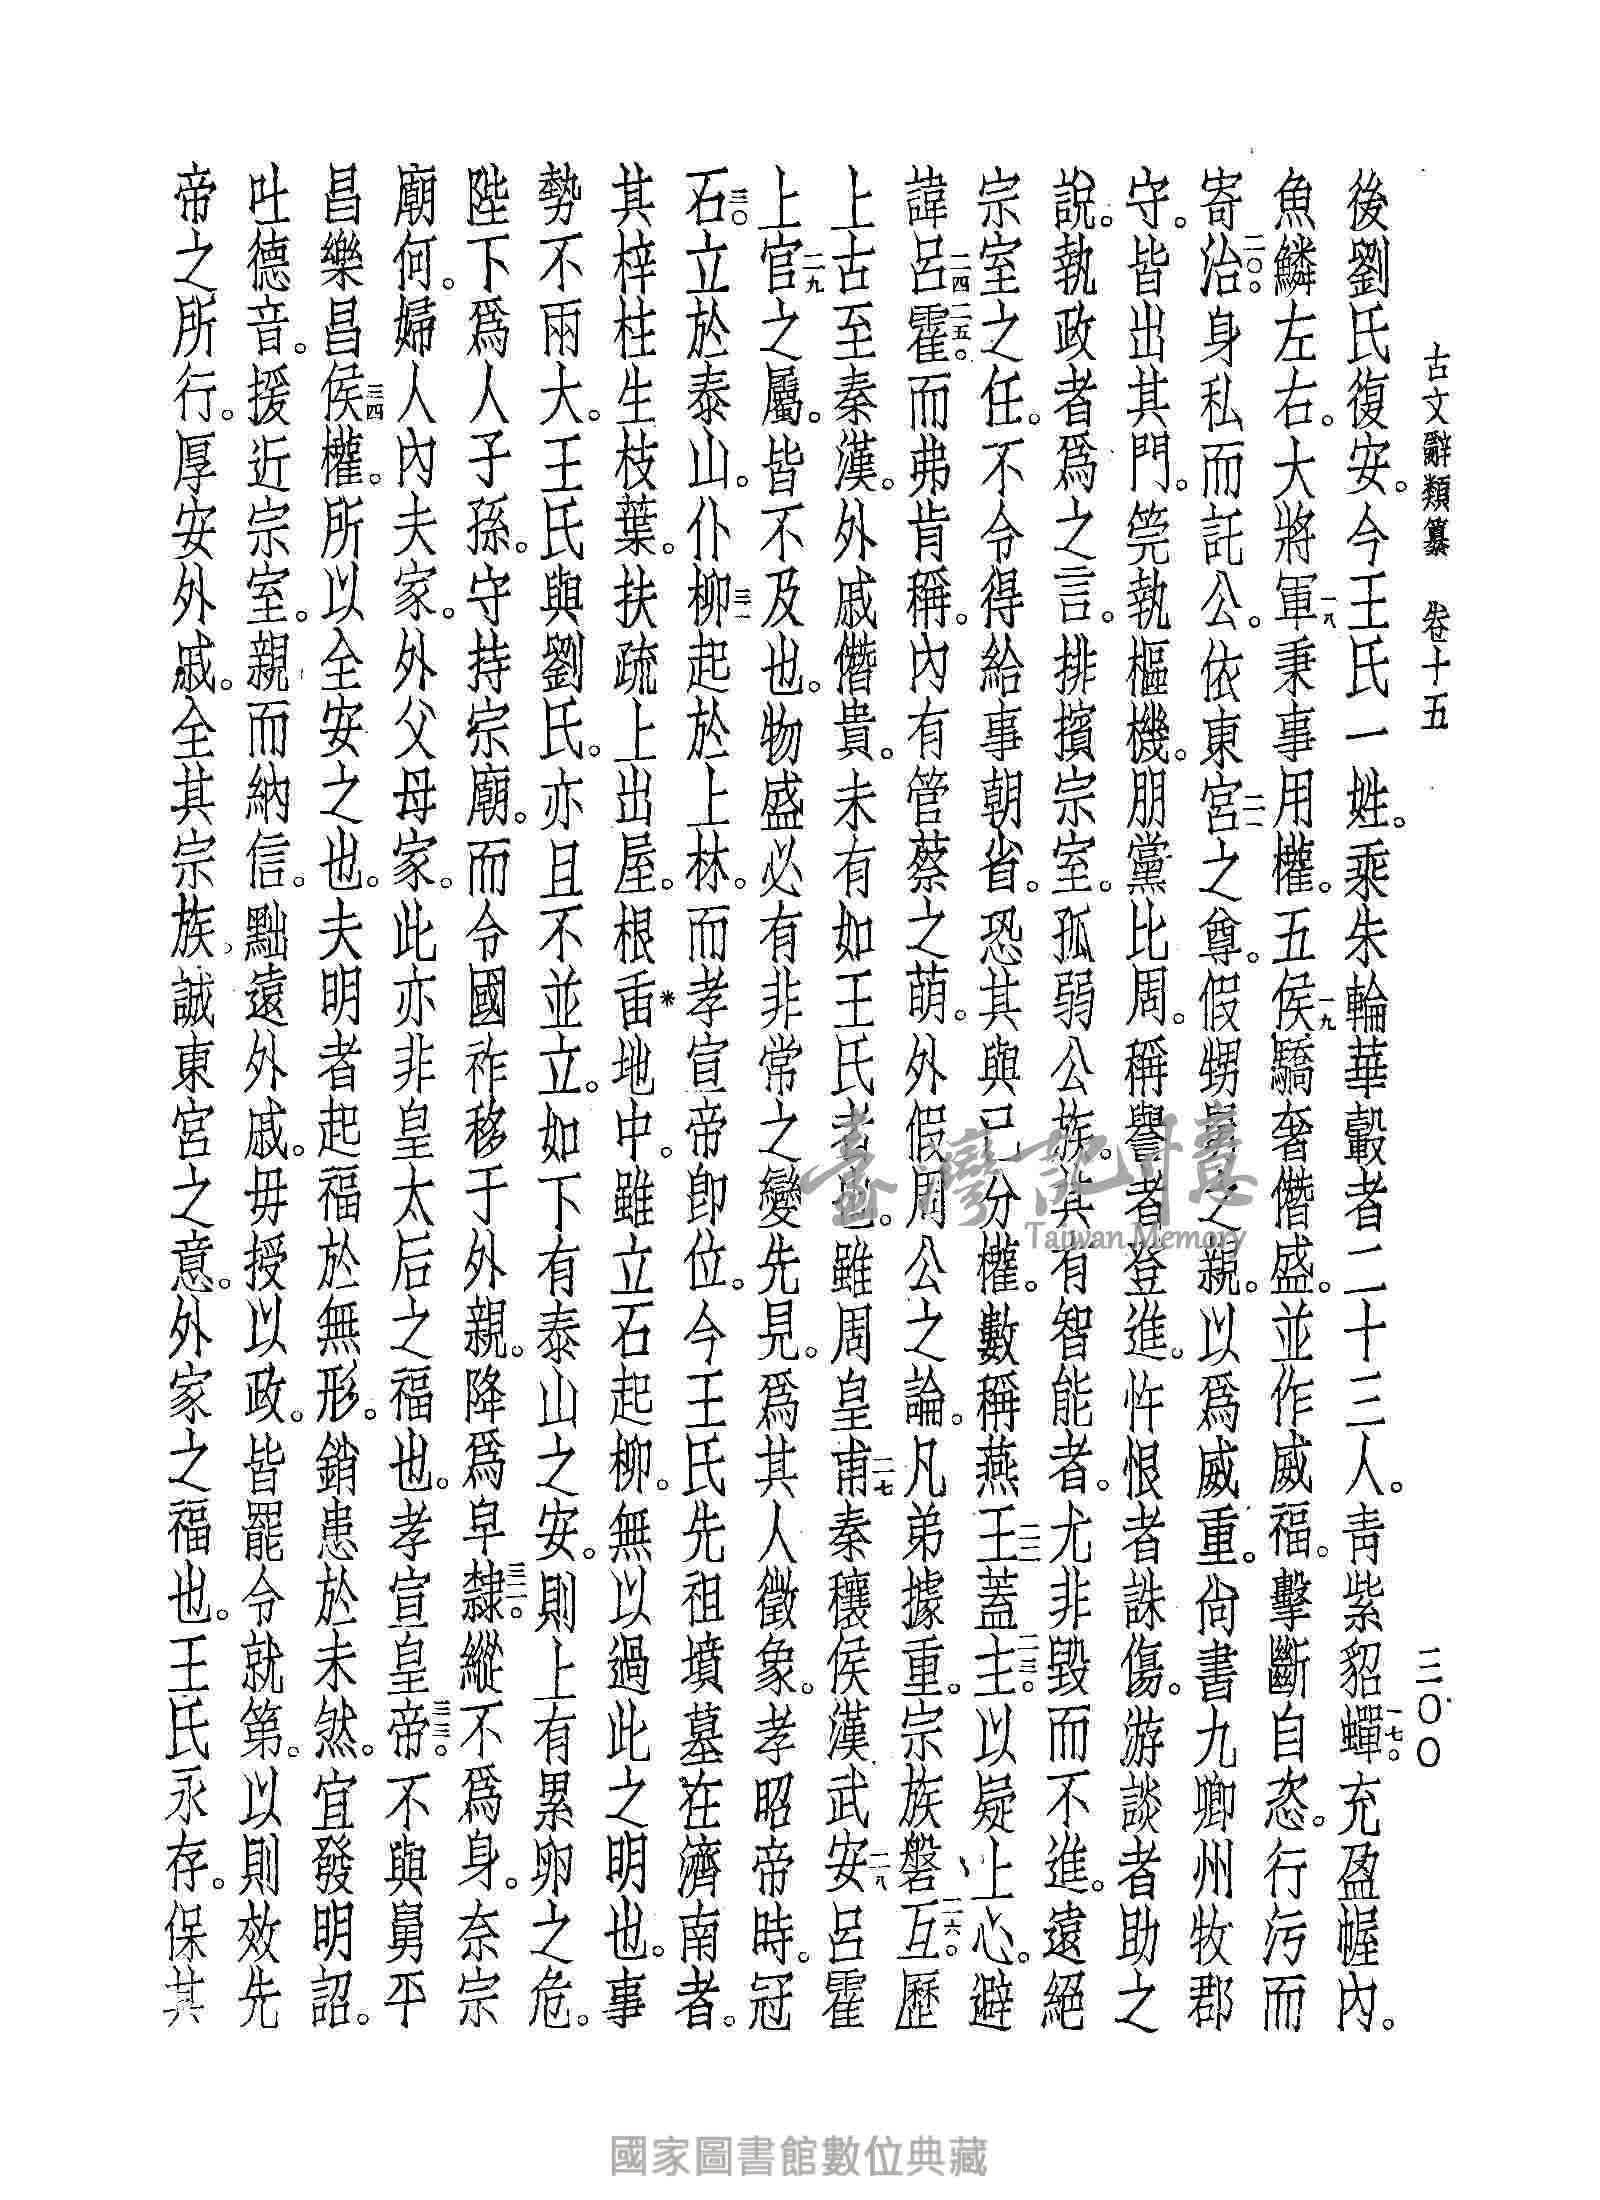 古文辭類纂　卷十五　三〇〇
後劉氏復安。今王氏一姓。乘朱輪華轂者二十三人。靑紫貂蟬一七。充盈幄內。
魚鱗左右。大將軍一八秉事用權。五侯一九驕奢僭盛。並作威福。擊斷自恣。行汚而
寄治二〇。身私而託公。依東宮二一之尊。假甥舅之親。以爲威重。尙書九卿州牧郡
守。皆出其門。筦執樞機。朋黨比周。稱譽者登進。忤恨者誅傷。游談者助之
說。執政者爲之言。排擯宗室。孤弱公族。其有智能者。尤非毀而不進。遠絕
宗室之任。不令得給事朝省。恐其與己分權。數稱燕王二二蓋主二三。以疑上心。避
諱呂二四霍二五。而弗肯稱。內有管蔡之萌。外假周公之論。兄弟據重。宗族磐互二六。歷
上古至秦漢。外戚僭貴。未有如王氏者也。雖周皇甫二七秦穰侯漢武安二八呂霍
上官二九之屬。皆不及也。物盛必有非常之變先見。爲其人徵象。孝昭帝時。冠
石三〇立於泰山。仆柳三一起於上林。而孝宣帝卽位。今王氏先祖墳墓在濟南者。
其梓柱生枝葉。扶疏上出屋。根臿*地中。雖立石起柳。無以過此之明也。事
勢不兩大。王氏與劉氏。亦且不並立。如下有泰山之安。則上有累卵之危。
陛下爲人子孫。守持宗廟。而令國祚移于外親。降爲皁隸三二。縱不爲身。奈宗
廟何。婦人內夫家。外父母家。此亦非皇太后之福也。孝宣皇帝三三。不與舅平
昌樂昌侯三四權。所以全安之也。夫明者起福於無形。銷患於未然。宜發明詔。
吐德音。援近宗室。親而納信。黜遠外戚。毋授以政。皆罷令就第。以則效先
帝之所行。厚安外戚。全其宗族、誠東宮之意。外家之福也。王氏永存。保其
臺灣記憶
Taiwan Memory
國家圖書館數位典藏